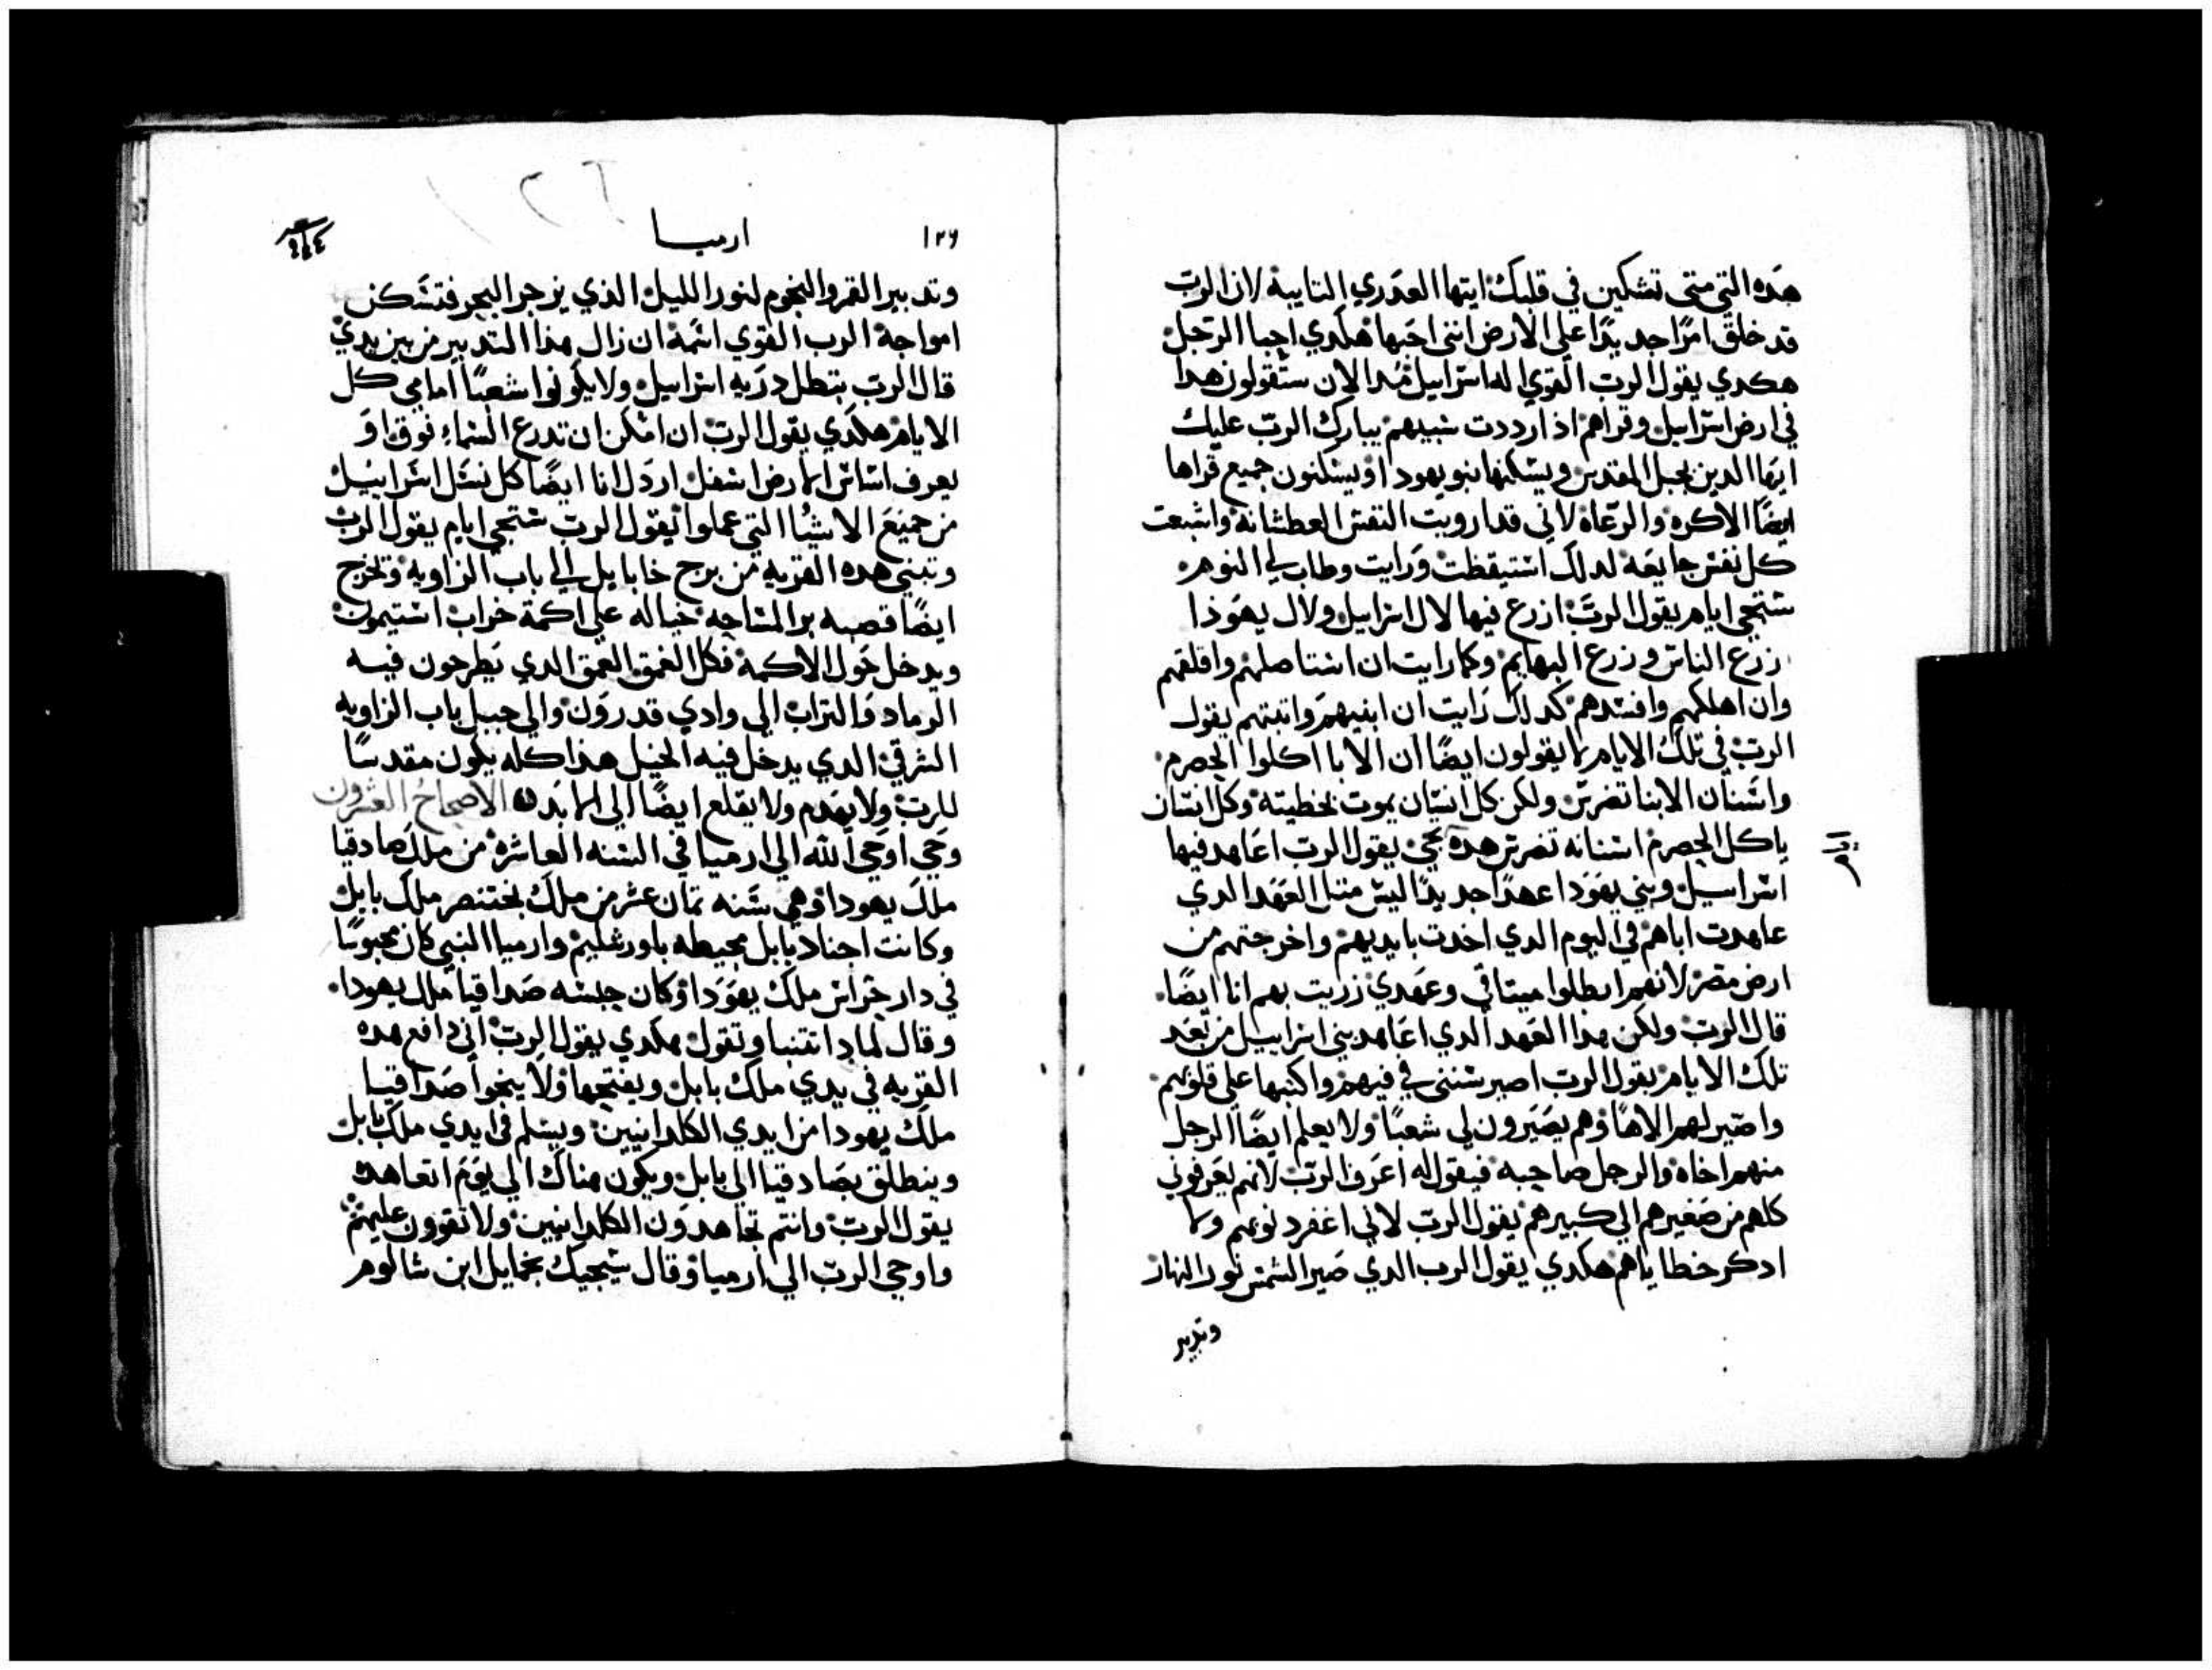 هده التي متى تشكين في قلبك ايتها العدري التايبة لان الرب
قد خلق امرًا جديدًا على الارض انني احبها هكدي احبا الرجل
هكدي يقول الرب القوي اله اسرابيل مدا الان ستقولون هدا
في ارض اسرابيل وقراهم اذ ارددت سبيهم يبارك الرب عليك
ايها الدين بجبل المقدس ويسكنها بنو يهودا ويسكنون جميع قراها
ايضًا الاكره والرعاة لاني قد ارويت النفس العطشانة واشبعت
كل نفس جايعه لدلك استيقظت ورايت وطاب لي النوم
ستجي ايام يقول الرب ازرع فيها لال اسرابيل ولال يهوذا
زرع الناس وزرع البهايم وكما رايت ان استاصلهم واقلقهم
وان اهلكهم وافسدهم كدلك رايت ان ابنيهم واتبتهم يقول
الرب في تلك الايام لا يقولون ايضًا ان الابا اكلوا الحصرم
واسنان الابنا تضرس ولكن كل انسان يموت بخطيته وكل انسان
ياكل الحصرم اسنانه تضرس هده تجي يقول الرب اعاهد فيها
اسراسيل وبني يهودا عهدًا جديدًا ليس متل العهد الدي
عاهدت اباهم في اليوم الدي اخدت بايديهم واخرجتهم من
ارض مصر لانهم ابطلوا ميتاقي وعهدي زريت بهم انا ايضًا
قال الرب ولكن هدا العهد الدي اعاهد بني اسرابيل من بعد
تلك الايام يقول الرب اصير سنني في فيهم واكتبها على قلوبهم
واصير لهم الاهًا وهم يصيرون لي شعبًا ولا يعلم ايضًا الرجل
منهم اخاه والرجل صاحبه فيقول له اعرف الرب لانهم يعرفوني
كلهم من صغيرهم الي كبيرهم يقول الرب لاني اغفر دنوبهم ولا
ادكر خطاياهم هكدي يقول الرب الدي صير الشمس نور النهار
وتدبير
١٢٦
ارميا
وتدبير القمر والنجوم لنور الليل الذي يزجر البحر فتسكن
امواجه الرب القوي اسمه ان زال هدا التدبير من بين يدي
قال الرب بتطل دريه اسرابيل ولا يكونوا شعبًا امامي كل
الايام هكدي يقول الرب ان امكن ان تدرع السماء فوق او
يعرف اساس الارض اسفل اردل انا ايضًا كل نسل اسرابيل
من جميع الاشيا التي عملوا يقول الرب ستجي ايام يقول الرب
وتبني هده القريه من برج خابايل الي باب الزاويه وتخرج
ايضًا قصبه بر المساحه خياله علي اكمة خراب استيمون
ويدخل حول الاكمه فكل العمق العمق الدي يطرحون فيه
الرماد والتراب الي وادي قدرون والي جبل باب الزاويه
الشرقي الدي يدخل فيه الخيل هدا كله يكون مقدسًا
للرب ولا يهدم ولا يقلع ايضًا الي الابد الاصحاح العشرون
وحي اوحي الله الي ارميا في السنه العاشره من ملك صادقيا
ملك يهودا وهي سنه تمان عشر من ملك بختنصر ملك بابل
وكانت اجناد بابل محيطه باورشليم وارميا النبي كان محبوسًا
في دار حراس ملك يهودا وكان حبسه صداقيا ملك يهودا
وقال لماد اتتنبا وتقول هكدي يقول الرب اني دافع هده
القريه في يدي ملك بابل ويفتحها ولا ينجوا صداقيا
ملك يهودا من ايدي الكلدانيين ويسلم في ايدي ملك بابل
وينطلق بصادقيا الي بابل ويكون هناك الي يوم اتعاهده
يقول الرب وانتم تجاهدون الكلدانيين ولا تقوون عليهم
واوحي الرب الي ارميا وقال سيجيك بخمايل ابن شالوم